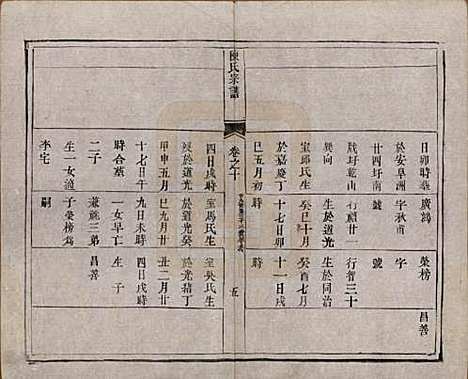 日卯時葬
於安阜洲
廿四圩南
戲圩乾山
巽向
室邱氏生
於嘉慶丁
巳五月初
廣鴻
字秋甫
號
行麟廿一
生於道光
癸巳十月
十七日卯
時
榮榜
字
號
行智三十
生於同治
癸酉七月
十一日戌
時
昌善
陳氏宗譜
卷之十
五
四日戌時
歿於道光
甲申五月
十七日午
時合墓
二子
生一女適
李宅
室馬氏生
於道光癸
巳九月廿
九日未時
一女早亡
兼祧三弟
子榮榜爲
嗣
室吳氏生
於光緒丁
丑二月廿
四日戌時
生子
昌善